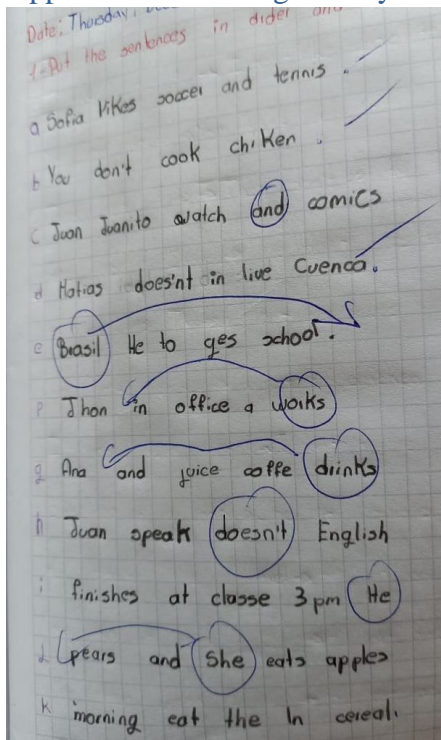 Date: Thursday,
1-Put the sentences in order and
a Sofia likes soccer and tennis.
b You don't cook chiken.
c Juan Juanito watch and comics
d Matias does'nt in live Cuenca.
e Brasil He to ges school.
f Jhon in office a works
g Ana and juice coffe drinks
h Juan speak doesn't English
i finishes at classe 3 pm He
J pears and She eats apples
k morning eat the In cereal.